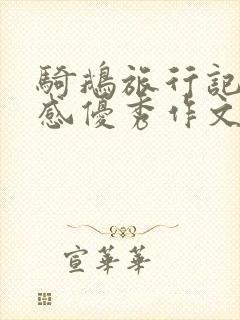 騎鵝旅行記
感優秀作文
宣華華